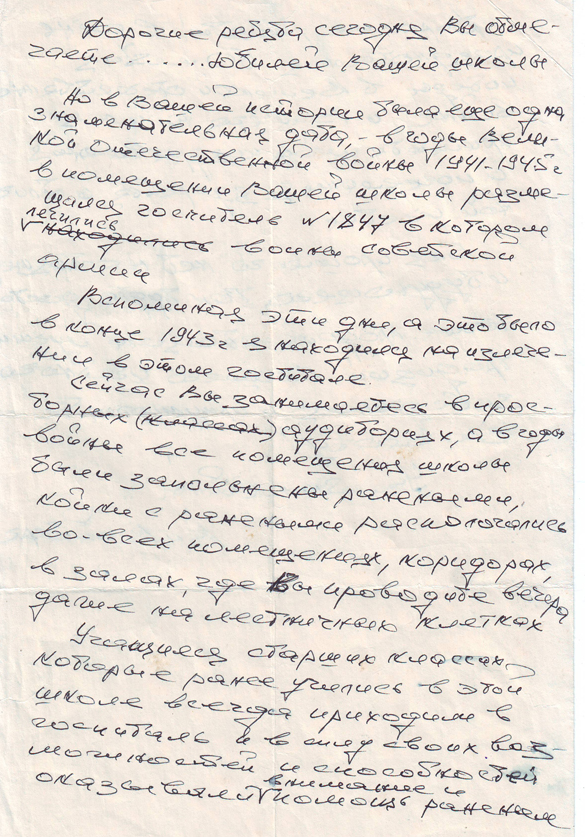 Дорогие ребята сегодня Вы отме-
чаете ...... юбилей Вашей школы
Но в Вашей истории была еще одна
знаменательная дата, - в годы Вели-
кой Отечественной войны 1941-1945г
в помещении Вашей школы разме-
щался госпиталь №1847 в котором
лечились
находились воины советской
армии
Вспоминая эти дни, а это было
в конце 1943г я находился на излече-
нии в этом госпитале.
Сейчас Вы занимаетесь в прос-
торных (классах) аудиториях, а в годы
войны все помещения школы
были заполнены ранеными,
койки с ранеными распологались
во-всех помещениях, коридорах,
в залах, где Вы проводите вечера
даже на лестничных клетках
Учащиеся старших классах,
которые ранее учились в этой
школе всегда приходили в
госпиталь и в силу своих воз-
можностей и способностей
внимание и
оказывали помощь раненым